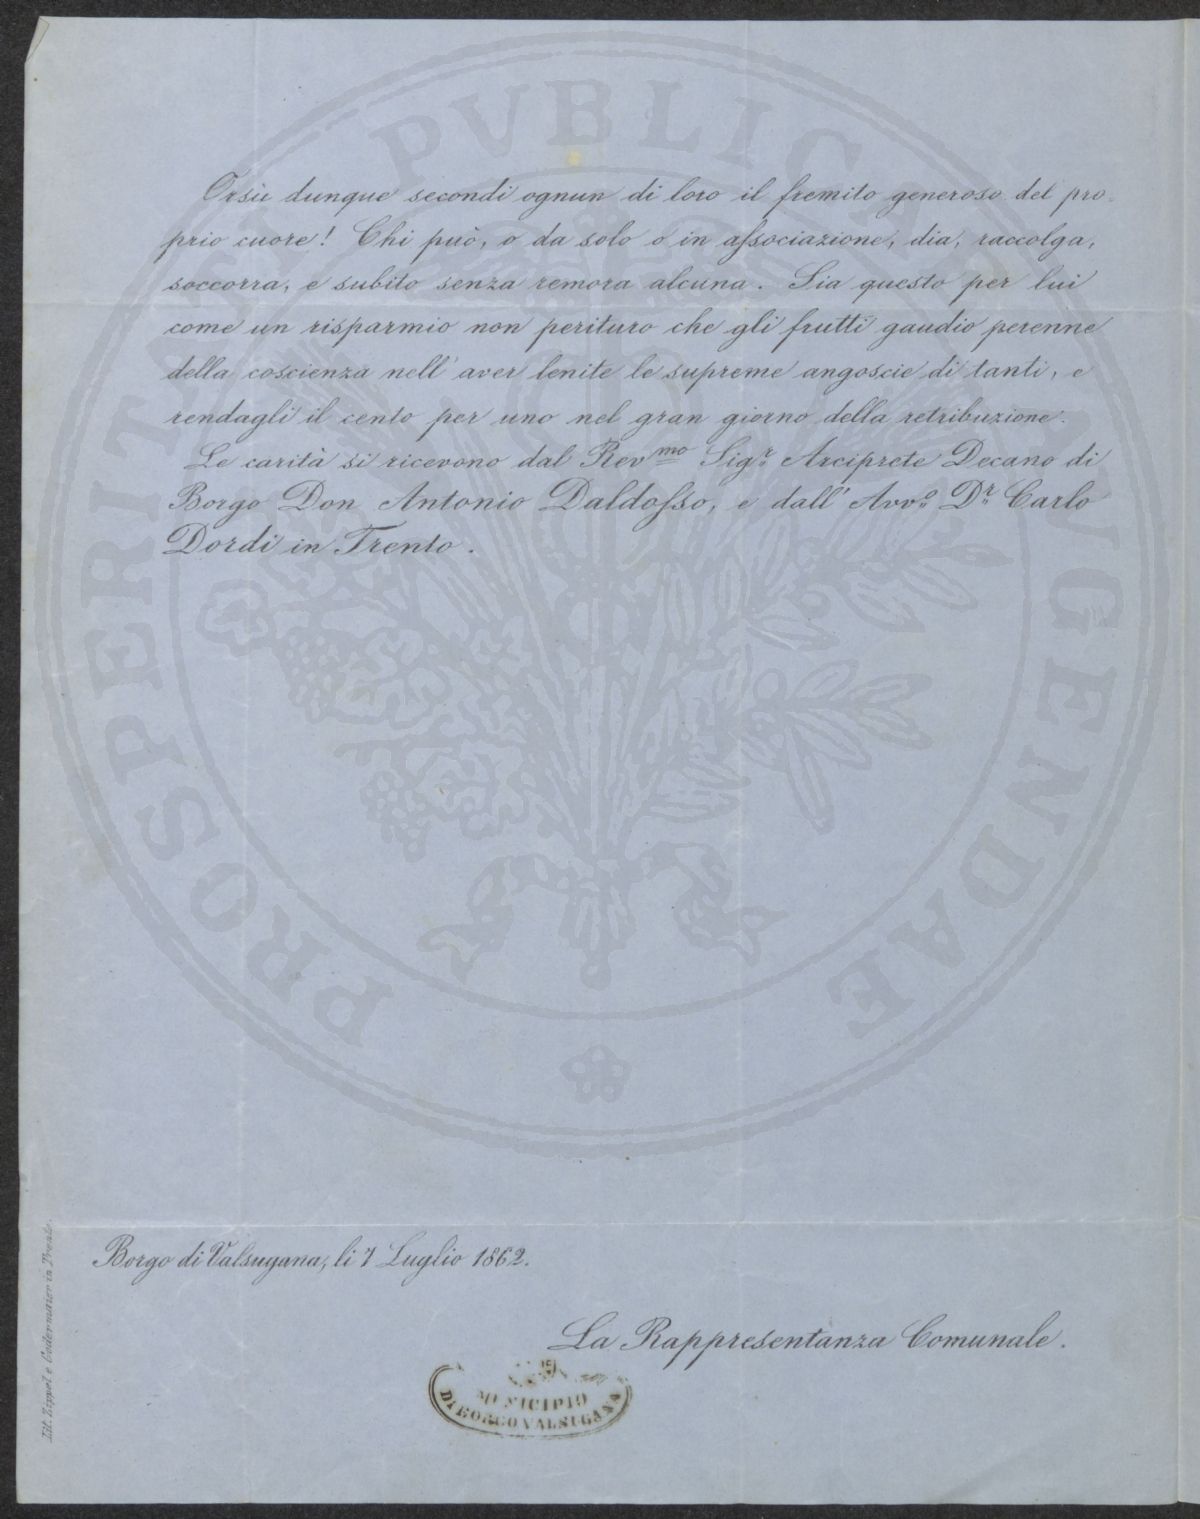 Orsù dunque secondi ognun di loro il fremito generoso del pro-
prio cuore! Chi può, o da solo o in associazione, dia, raccolga,
soccorra, e subito senza remora alcuna. Sia questo per lui
come un risparmio non perituro che gli frutti gaudio perenne
della coscienza nell' aver lenite le supreme angoscie di tanti, e
rendagli il cento per uno nel gran giorno della retribuzione.
Le carità si ricevono dal Rev.mo Sig.r Arciprete Decano di
Borgo Don Antonio Daldosso, e dall' Avv.o D.r Carlo
Dordi in Trento.
Borgo di Valsugana, li 7 Luglio 1862.
La Rappresentanza Comunale.
MUNICIPIO
DI BORGO VALSUGANA
Lit. Zippel e Godermaier in Trento.
PROSPERITATI PVBLICAE AVGENDAE